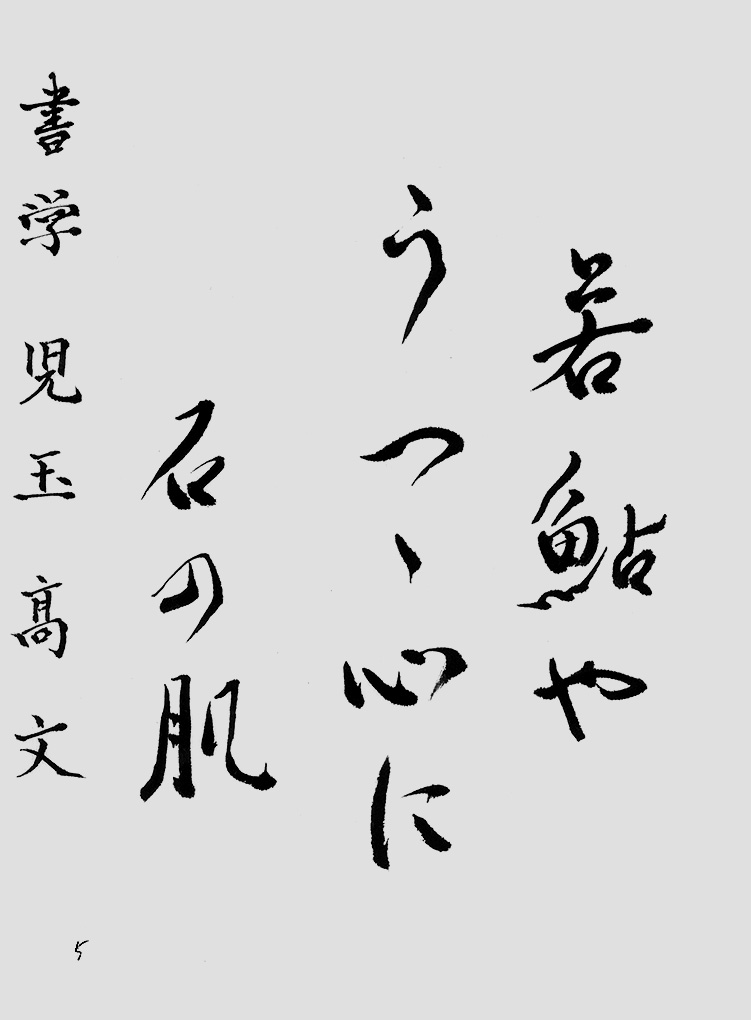 若鮎や
うつゝ心に
石の肌
書学 児玉高文
5